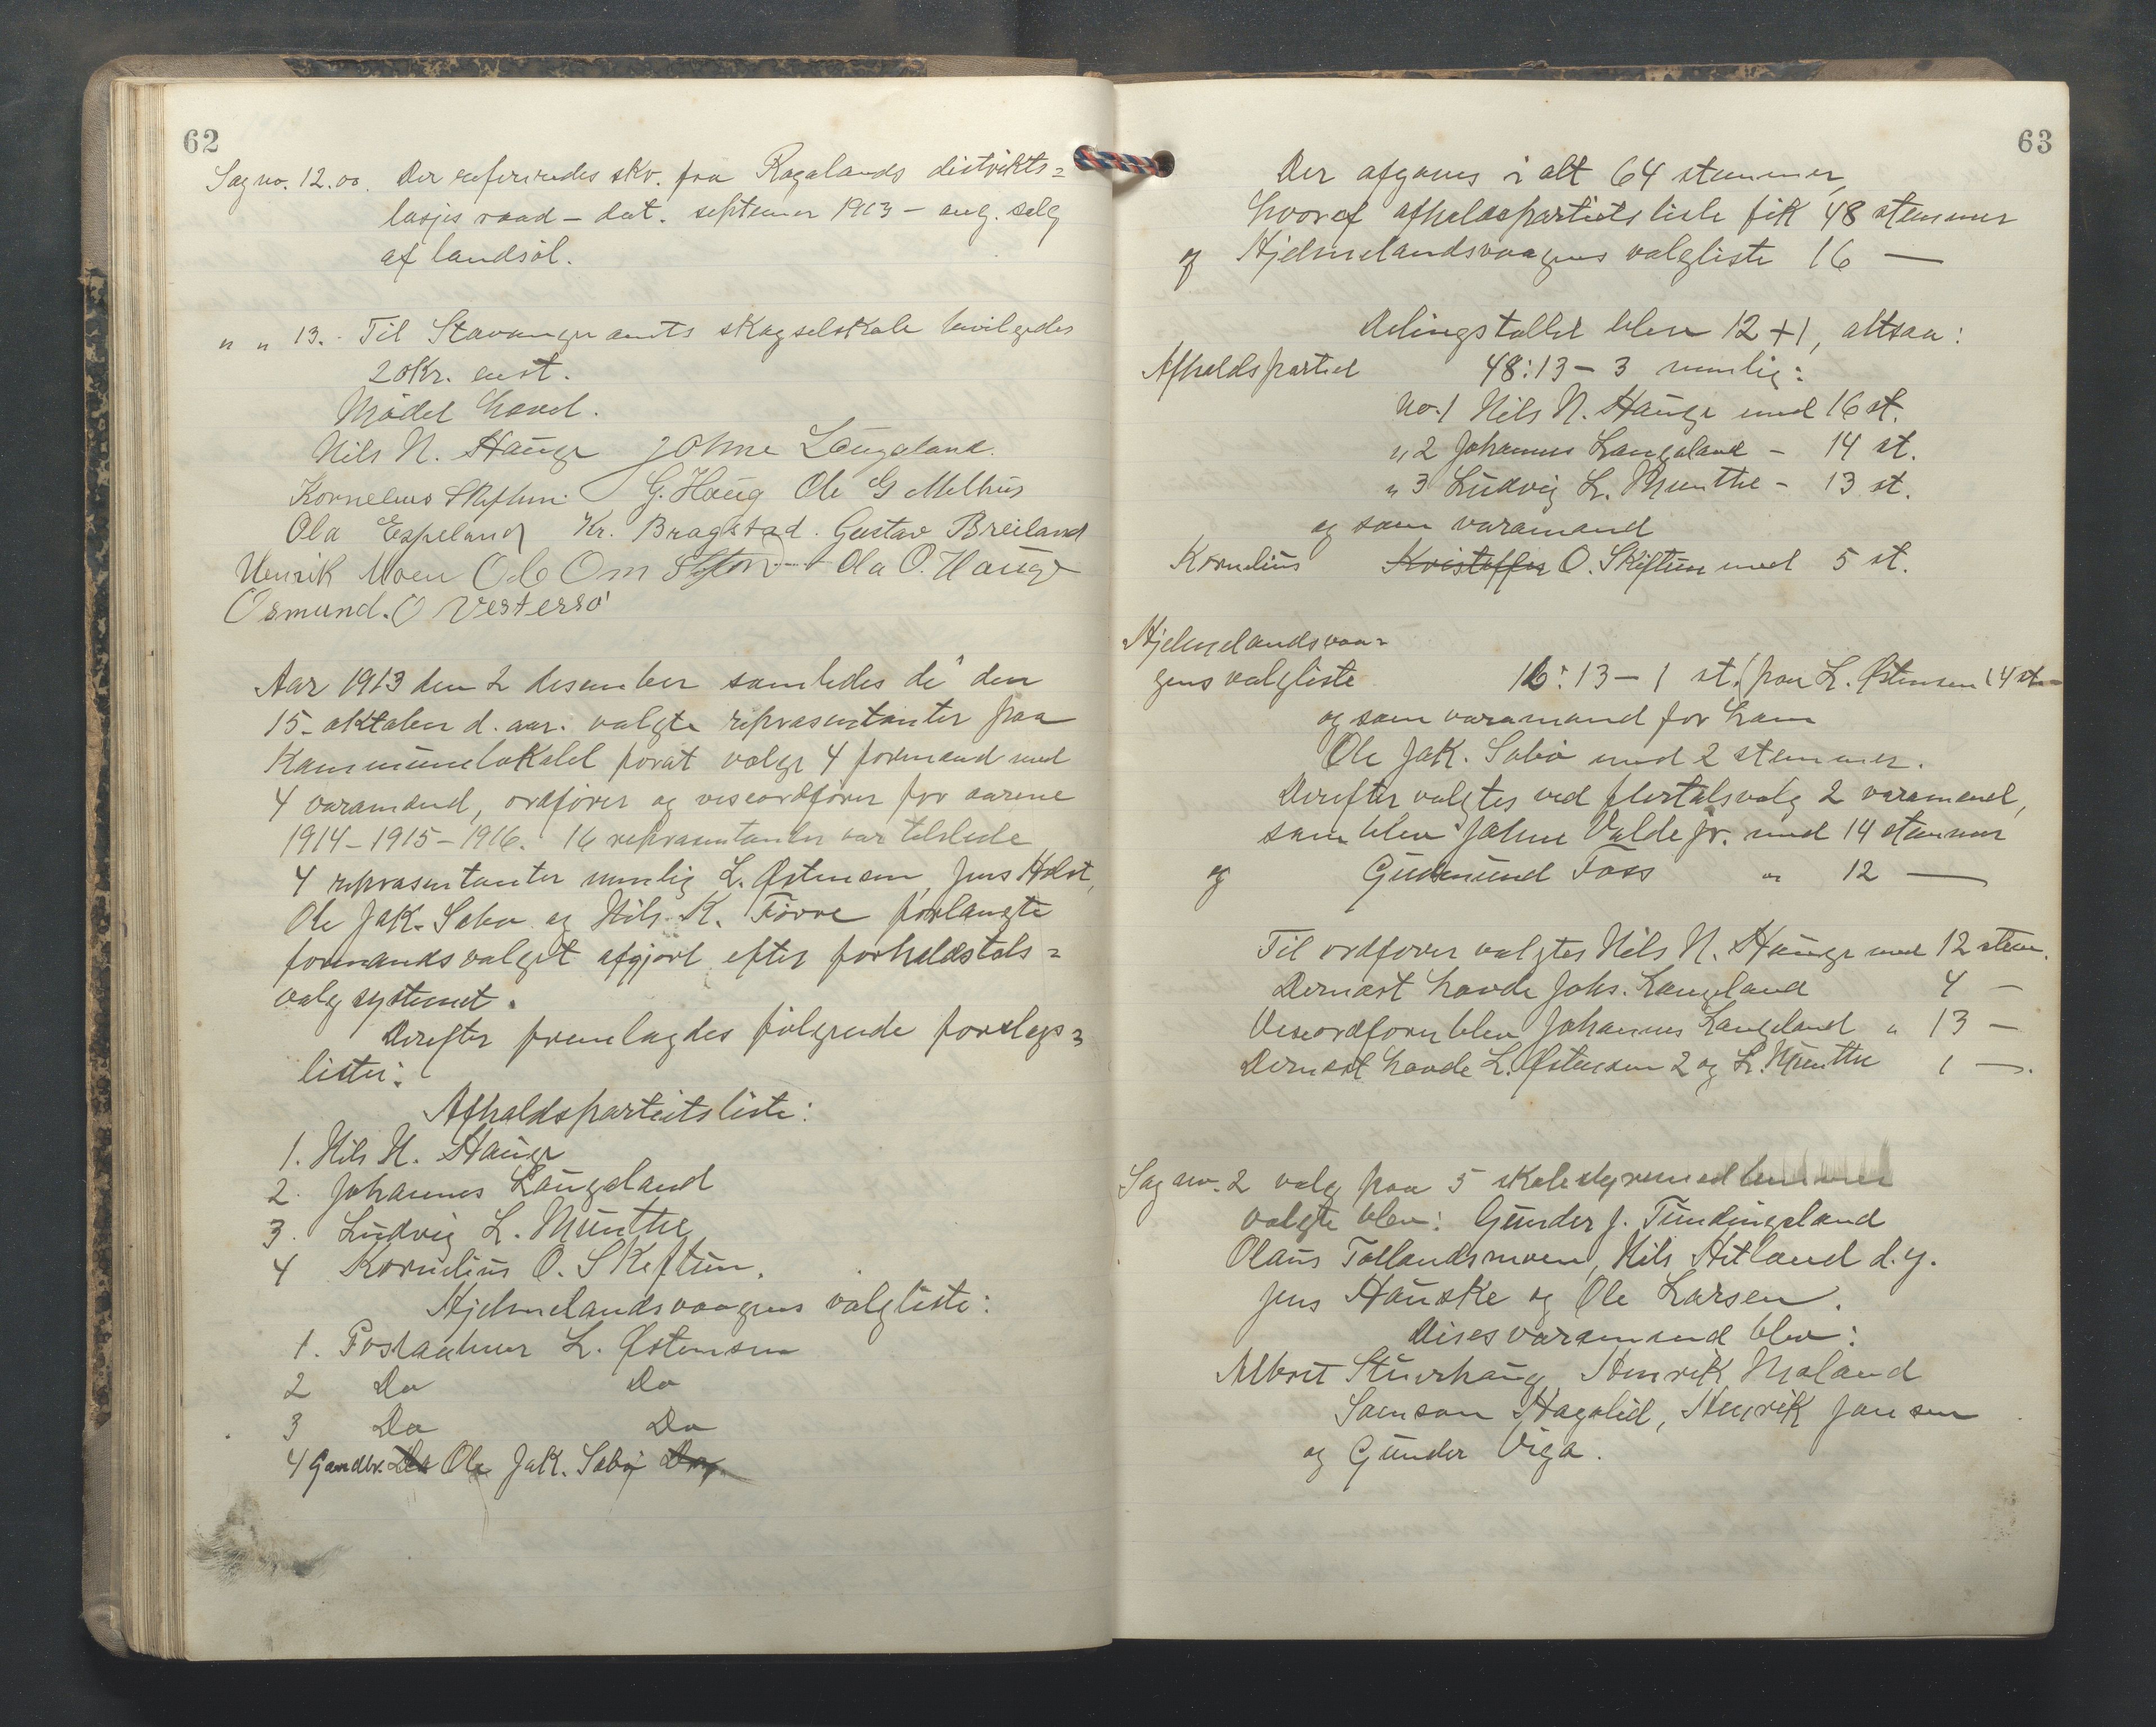 62
Sag no. 12.00. Der refereredes skr. fra Rogalands distrikts=
losjes raad – dat. septemer 1913 – ang. salg
af landsøl.
" " 13. Til Stavanger amts skogselskale bevilgedes
20 Kr. enst.
Mødet hævet.
Nils N. Hauge Johne Laugaland.
Kornelius Skiftun. G. Haug Ole G Melhus
Ola Espeland Kr. Bragstad. Gustav Breiland
Henrik Moen Ole Om Ola O. Hauge
Osmund. O Vestersø
Aar 1913 den 2 desember samledes de den
15– oktober d. aar. valgte repræsentanter paa
Kommunelokalet forat vælge 4 formænd med
4 varamænd, ordfører og viseordfører for aarene
1914–1915–1916. 16 repræsentanter var tilstede
4 repræsentanter nemlig L. Østensen, Jens Holst,
Ole Jak. Sabø og Nils K. Førre forlangte
formandsvalget afgjort efter forholdstals=
valg systemet.
Derefter fremlagdes følgende forslags=
lister:
Afholdspartietsliste:
1. Nils N. Hauge
2. Johannes Laugaland
3. Ludvig L. Munthe
4 Kornelius O. Skiftun.
Hjelmelandsvaagens valgliste:
1. Postaabner L. Østensen
2 Do Do
3 Do Do
4 Gardbr. Do Ole Jak. Sabø Do
63
Der afgaves i alt 64 stemmer,
hvoraf afholdspartiets liste fik 48 stemmer
og Hjelmelandsvaagens valgliste 16 —
Delingstallet blev 12+1, altsaa:
Afholdspartiet 48:13 – 3 nemlig:
no. 1 Nils N. Hauge med 16 st.
" 2 Johannes Laugaland – 14 st.
" 3 Ludvig L. Munthe – 13 st.
og som varamand
Kornelius Kristoffer O. Skiftun med 5 st.
Hjelmelandsvaa=
gens valgliste 16:13 – 1 st. paa L. Østensen 14 st.
og som varamand for ham
Ole Jak. Sabø med 2 stemmer.
Derefter valgtes ved flertalsvalg 2 varamænd,
som blev Johne Valde jr. med 14 stemmer
og Gudmund Foss " 12 —
Til ordfører valgtes Nils N. Hauge med 12 stem.
Dernæst havde Johs. Laugaland 4 –
Viseordfører blev Johannes Laugaland " 13 –
Dernæst havde L. Østensen 2 og L. Munthe 1 —.
Sag no. 2 valg paa 5 skolestyremedlemmer
valgte blev: Gunder J. Tundingsland
Olaus Tøtlandsmoen, Nils Hetland d.y.
Jens Hauske og Ole Larsen.
Disses varamænd blev:
Albret Stuerhaug, Henrik Mæland
Samson Hagalid, Henrik Jansen
og Gunder Viga.